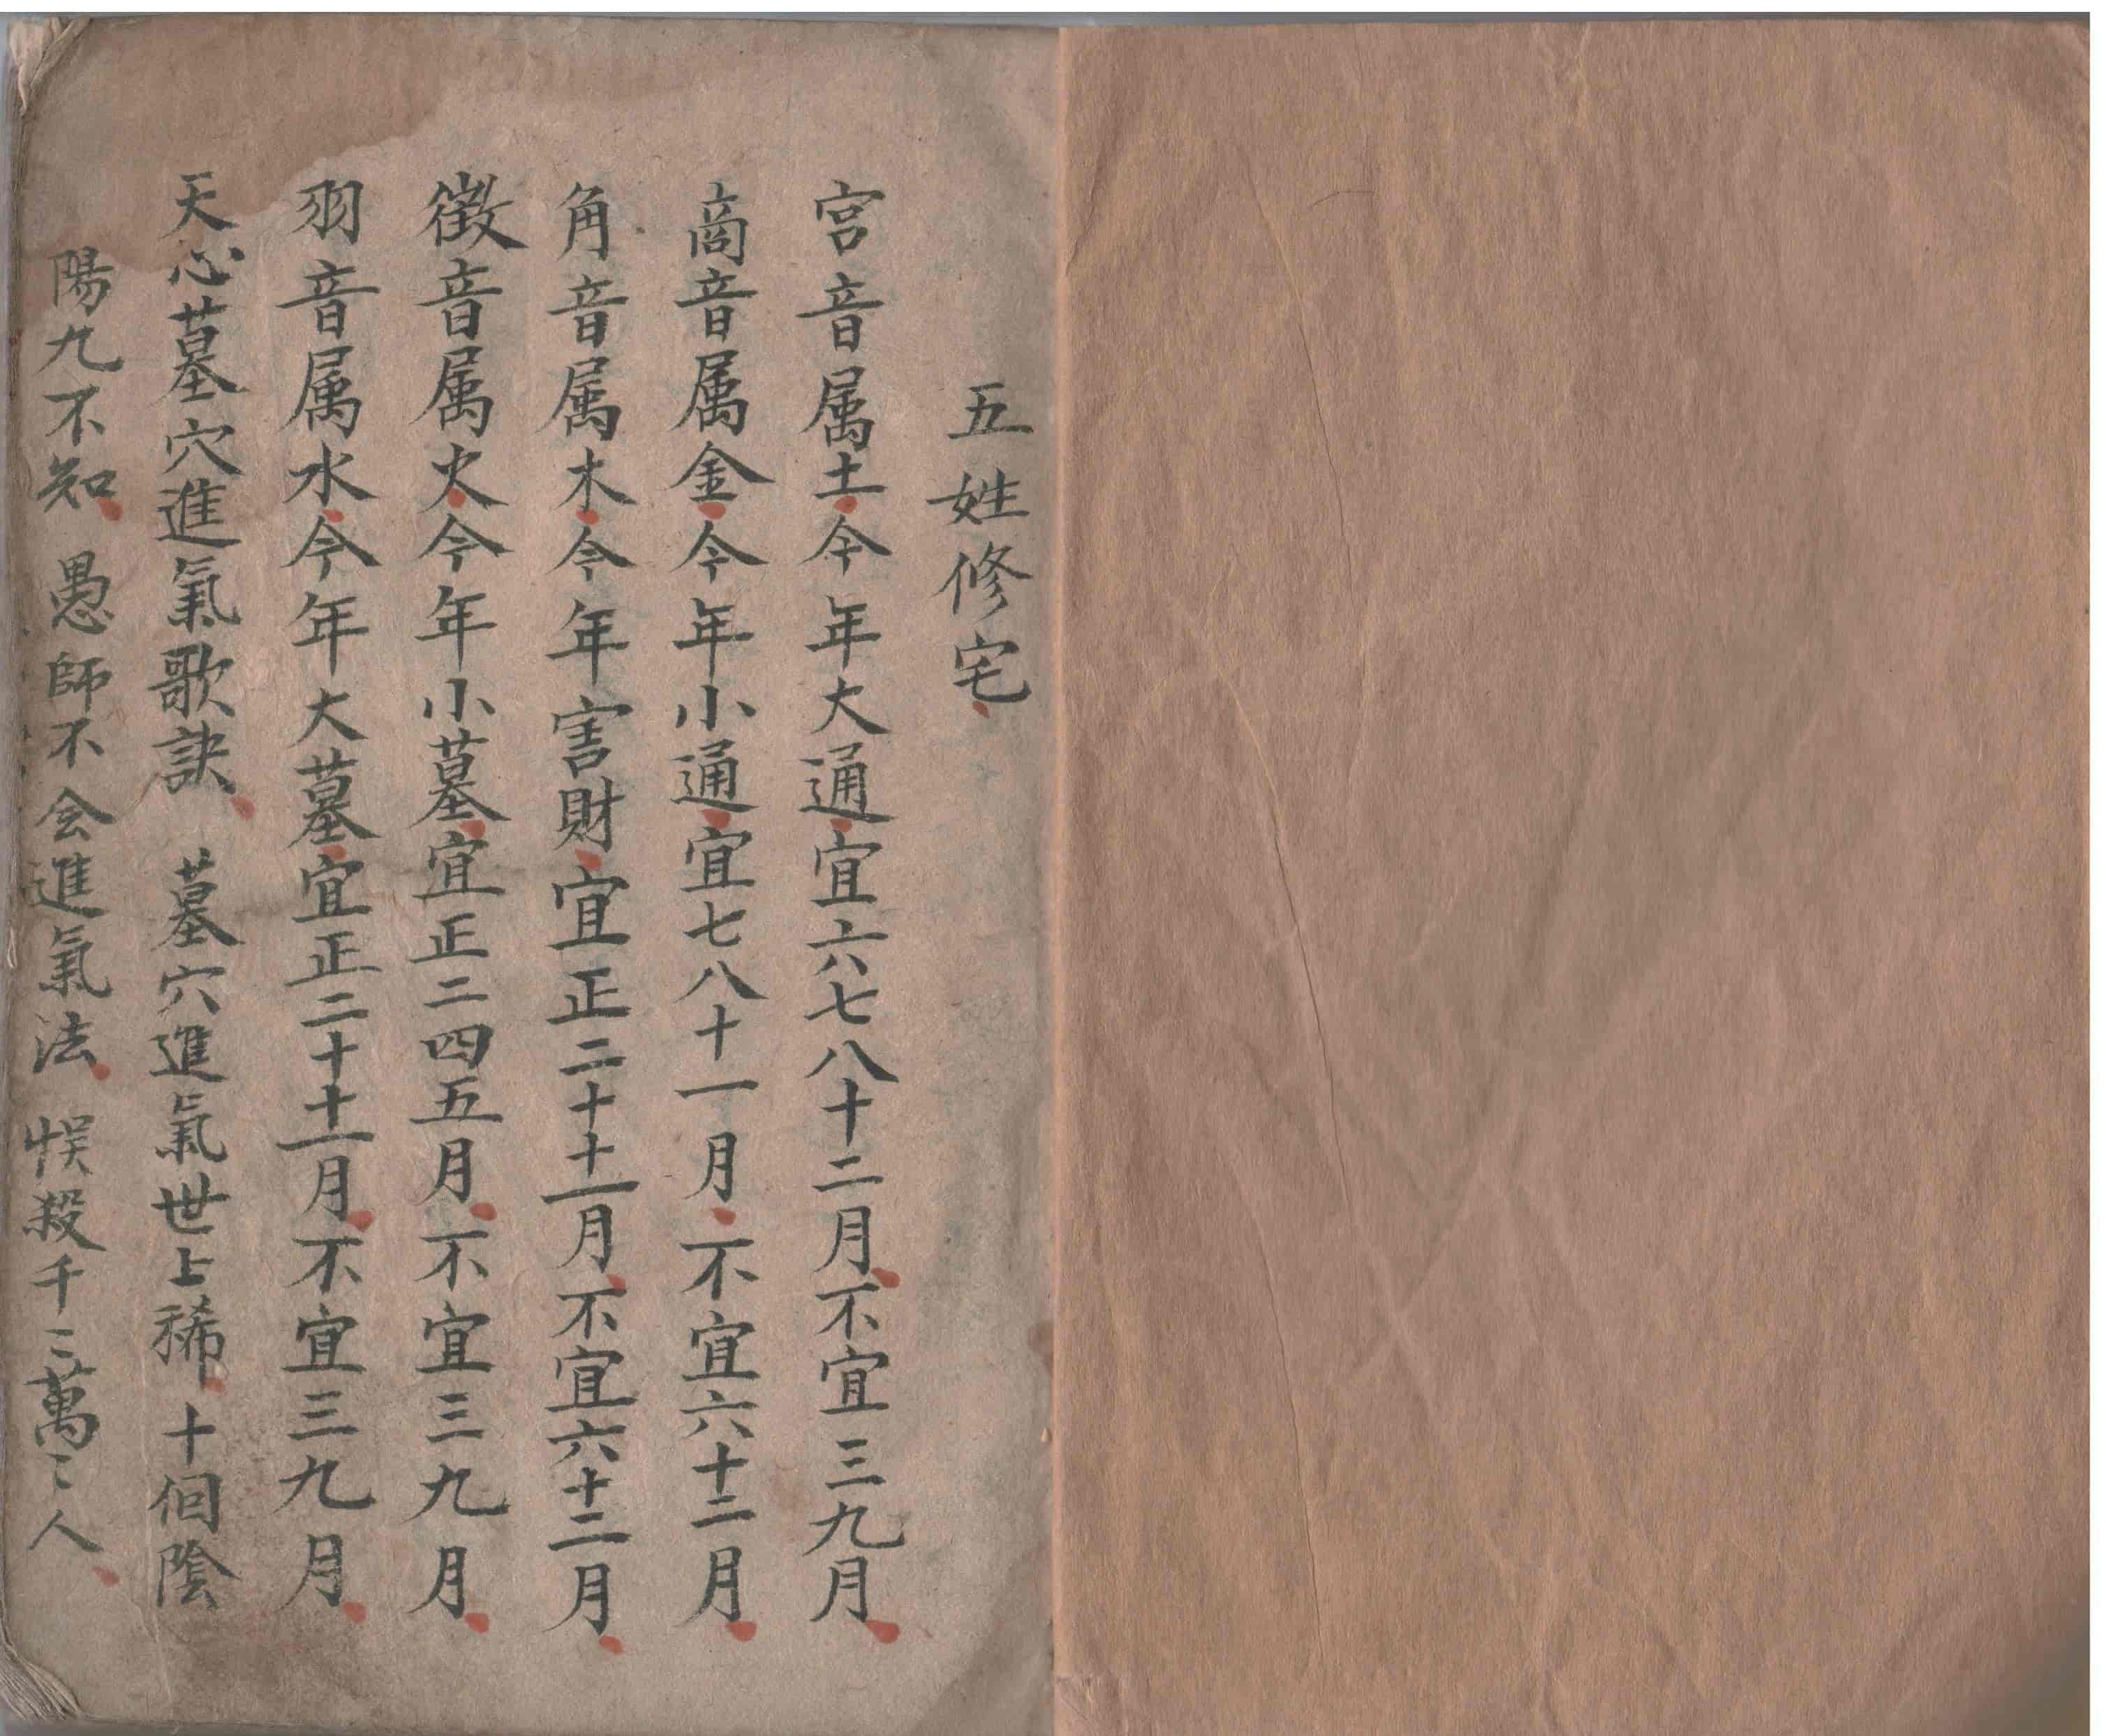 五姓修宅
宮音属土今年大通宜六七八十二月不宜三九月
商音属金今年小通宜七八十一月不宜六十二月
角音属木今年害財宜正二十十一月不宜六十二月
徵音属火今年小墓宜正二四五月不宜三九月
羽音属水今年大墓宜正二十十一月不宜三九月
天心墓穴進氣歌訣 墓穴進氣世上稀十個陰
陽九不知愚師不会進氣法悞殺千〻萬〻人